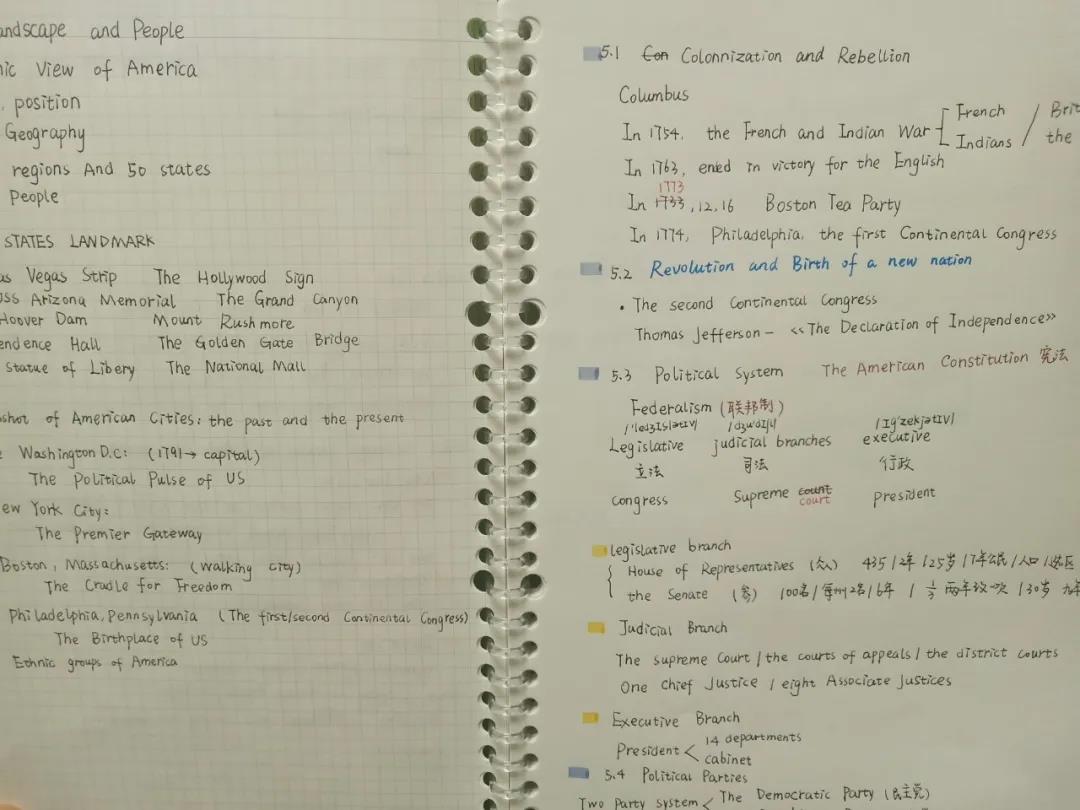 andscape and People
nic View of America
. position
Geography
regions And 50 states
People
STATES LANDMARK
as Vegas Strip The Hollywood Sign
USS Arizona Memorial The Grand Canyon
Hoover Dam Mount Rushmore
endence Hall The Golden Gate Bridge
Statue of Libery The National Mall
shot of American Cities: the past and the present
Washington D.C: (1791→ capital)
The Political Pulse of US
ew York City:
The Premier Gateway
Boston, Massachusetts: (walking city)
The Cradle for Freedom
Philadelphia, Pennsylvania (The first/second Continental Congress)
The Birthplace of US
Ethnic groups of America
5.1 Con Colonnization and Rebellion
Columbus
In 1754, the French and Indian War French / Brit
Indians the
In 1763, ened in victory for the English
1773
In 1733, 12, 16 Boston Tea Party
In 1774, Philadelphia, the first Continental Congress
5.2 Revolution and Birth of a new nation
· The second Continental Congress
Thomas Jefferson — 《The Declaration of Independence》
5.3 Political System The American Constitution 宪法
Federalism (联邦制)
/'ledʒɪslətɪv/ /dʒuˈdɪʃl/ /ɪg'zekjətɪv/
Legislative judicial branches executive
立法 司法 行政
congress Supreme count president
court
legislative branch
House of Representatives (众) 435/2年/25岁/7年公民/人口/选区
the Senate (参) 100名/每州2名/6年 / 1/3 两年改一次 /30岁 九年
Judicial Branch
The supreme Court / the courts of appeals / the district courts
One Chief Justice / eight Associate Justices
Executive Branch
14 departments
President <
cabinet
5.4 Political Parties
Two Party system < The Democratic Party (民主党)